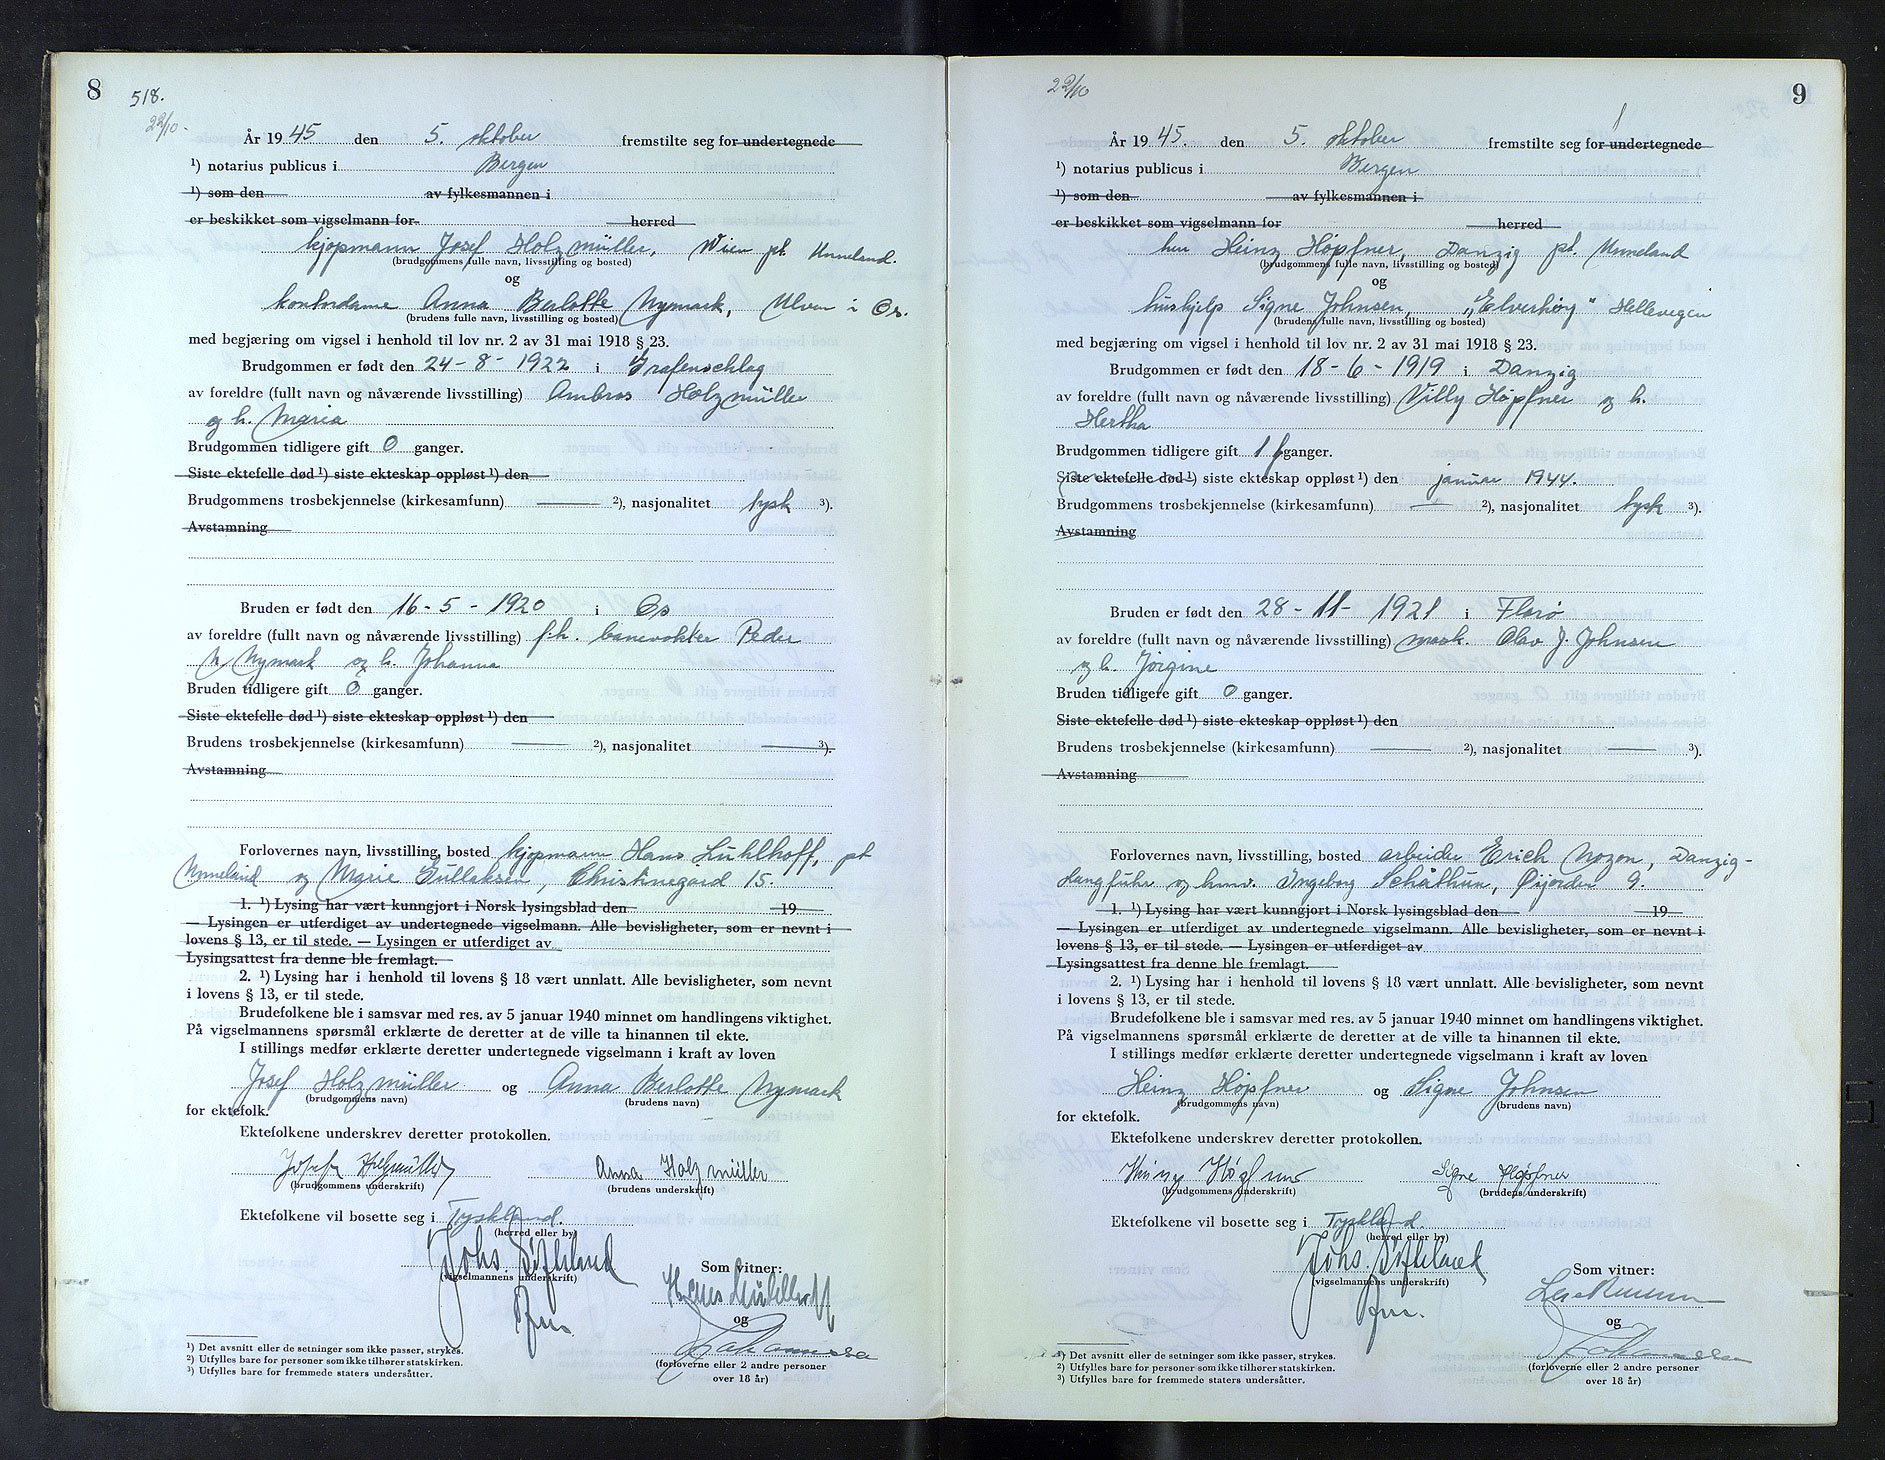 8
518.
22/10.
År 1945 den 5. oktober fremstilte seg for undertegnede
¹) notarius publicus i Bergen
¹) som den av fylkesmannen i
er beskikket som vigselmann for herred
kjøpmann Josef Holzmüller, Wien pt. Unneland.
(brudgommens fulle navn, livsstilling og bosted)
og
kontordame Anna Berlotte Nymark, Ulven i Os.
(brudens fulle navn, livsstilling og bosted)
med begjæring om vigsel i henhold til lov nr. 2 av 31 mai 1918 § 23.
Brudgommen er født den 24-8-1922 i Grafenschlag
av foreldre (fullt navn og nåværende livsstilling) Ambros Holzmüller
og h. Maria
Brudgommen tidligere gift 0 ganger.
Siste ektefelle død ¹) siste ekteskap oppløst ¹) den
Brudgommens trosbekjennelse (kirkesamfunn) ²), nasjonalitet tysk ³).
Avstamning
Bruden er født den 16-5-1920 i Os
av foreldre (fullt navn og nåværende livsstilling) fh. banevokter Peder
N Nymark og h. Johanna
Bruden tidligere gift 0 ganger.
Siste ektefelle død ¹) siste ekteskap oppløst ¹) den
Brudens trosbekjennelse (kirkesamfunn) ²), nasjonalitet ³).
Avstamning
Forlovernes navn, livsstilling, bosted kjøpmann Hans Luhlhoff, pt
Unneland og Marie Gullaksen, Christinegård 15.
1. ¹) Lysing har vært kunngjort i Norsk lysingsblad den 19
— Lysingen er utferdiget av undertegnede vigselmann. Alle bevisligheter, som er nevnt i
lovens § 13, er til stede. — Lysingen er utferdiget av
Lysingsattest fra denne ble fremlagt.
2. ¹) Lysing har i henhold til lovens § 18 vært unnlatt. Alle bevisligheter, som nevnt
i lovens § 13, er til stede.
Brudefolkene ble i samsvar med res. av 5 januar 1940 minnet om handlingens viktighet.
På vigselmannens spørsmål erklærte de deretter at de ville ta hinannen til ekte.
I stillings medfør erklærte deretter undertegnede vigselmann i kraft av loven
Josef Holzmüller og Anna Berlotte Nymark
(brudgommens navn) (brudens navn)
for ektefolk.
Ektefolkene underskrev deretter protokollen.
Josef Holzmüller Anna Holzmüller
(brudgommens underskrift) (brudens underskrift)
Ektefolkene vil bosette seg i Tyskland.
(herred eller by)
Johs. Søfteland
(vigselmannens underskrift)
Som vitner:
og
(forloverne eller 2 andre personer
over 18 år)
¹) Det avsnitt eller de setninger som ikke passer, strykes.
²) Utfylles bare for personer som ikke tilhører statskirken.
³) Utfylles bare for fremmede staters undersåtter.
22/10
9
År 1945. den 5. oktober fremstilte seg for undertegnede
¹) notarius publicus i Bergen
¹) som den av fylkesmannen i
er beskikket som vigselmann for herred
herr Heinz Höpfner, Danzig pt. Unneland
(brudgommens fulle navn, livsstilling og bosted)
og
hushjelp Signe Johnsen, "Elverhøy" Hellevegen
(brudens fulle navn, livsstilling og bosted)
med begjæring om vigsel i henhold til lov nr. 2 av 31 mai 1918 § 23.
Brudgommen er født den 18-6-1919 i Danzig
av foreldre (fullt navn og nåværende livsstilling) Villy Höpfner og h.
Hertha
Brudgommen tidligere gift 1 ganger.
Siste ektefelle død ¹) siste ekteskap oppløst ¹) den januar 1944.
Brudgommens trosbekjennelse (kirkesamfunn) ²), nasjonalitet tysk ³).
Avstamning
Bruden er født den 28-11-1921 i Florø
av foreldre (fullt navn og nåværende livsstilling) mask. Olav J. Johnsen
og h. Jörgine
Bruden tidligere gift 0 ganger.
Siste ektefelle død ¹) siste ekteskap oppløst ¹) den
Brudens trosbekjennelse (kirkesamfunn) ²), nasjonalitet ³).
Avstamning
Forlovernes navn, livsstilling, bosted arbeider Erich Nozon, Danzig-
Langfuhr og hmv. Ingeborg Schåthun, Øijorden 9.
1. ¹) Lysing har vært kunngjort i Norsk lysingsblad den 19
— Lysingen er utferdiget av undertegnede vigselmann. Alle bevisligheter, som er nevnt i
lovens § 13, er til stede. — Lysingen er utferdiget av
Lysingsattest fra denne ble fremlagt.
2. ¹) Lysing har i henhold til lovens § 18 vært unnlatt. Alle bevisligheter, som nevnt
i lovens § 13, er til stede.
Brudefolkene ble i samsvar med res. av 5 januar 1940 minnet om handlingens viktighet.
På vigselmannens spørsmål erklærte de deretter at de ville ta hinannen til ekte.
I stillings medfør erklærte deretter undertegnede vigselmann i kraft av loven
Heinz Höpfner og Signe Johnsen
(brudgommens navn) (brudens navn)
for ektefolk.
Ektefolkene underskrev deretter protokollen.
Heinz Höpfner Signe Höpfner
(brudgommens underskrift) (brudens underskrift)
Ektefolkene vil bosette seg i Tyskland.
(herred eller by)
Johs. Søfteland
(vigselmannens underskrift)
Som vitner:
og
(forloverne eller 2 andre personer
over 18 år)
¹) Det avsnitt eller de setninger som ikke passer, strykes.
²) Utfylles bare for personer som ikke tilhører statskirken.
³) Utfylles bare for fremmede staters undersåtter.